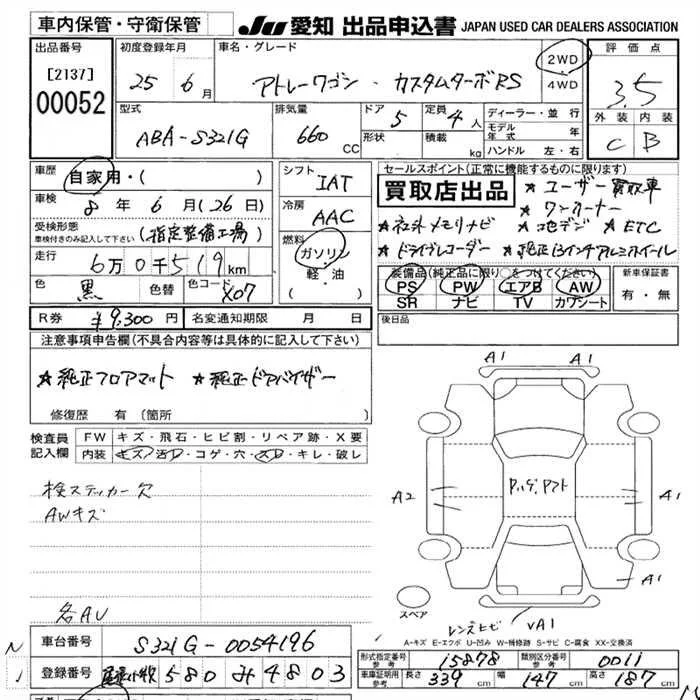 車内保管・守衛保管
JU 愛知 出品申込書 JAPAN USED CAR DEALERS ASSOCIATION
出品番号 初度登録年月 車名・グレード 評価点
[2137]
00052
25 6月 アトレーワゴン・カスタムターボRS 2WD 4WD 3.5
型式 排気量 ドア 定員 ディーラー・並行 外装 内装
ABA-S321G 660 CC 5 4人 モデル年式 年 C B
形状 積載 kg ハンドル 左・右
車歴 自家用・( )
シフト IAT
セールスポイント(正常に機能するものに限ります)
車検 8年 6月(26日)
冷房 AAC
買取店出品 ★ユーザー買取車
★ワンオーナー
受検形態 車検付きのみ記入して下さい (指定整備工場)
★社外メモリナビ ★地デジ ★ETC
走行 6万0千519km
燃料 ガソリン・軽・油 ( )
★ドライブレコーダー ★純正13インチアルミホイール
色 黒 色替 色コード X07
装備品(純正品に限り○をつけてください) 新車保証書
PS PW エアB AW 有・無
SR ナビ TV カワシート
R券 ¥9,300円 名変通知期限 月 日
後日品
注意事項申告欄(不具合内容等は具体的に記入して下さい)
★純正フロアマット ★純正ドアバイザー
修復歴 有 (箇所
検査員記入欄 FW キズ・飛石・ヒビ割・リペア跡・X要
内装 キズ・汚レ・コゲ・穴・スレ・キレ・破レ
検ステッカー欠
AWキズ
各AU
A1 A1
A2 A1
A1
スペア
レンズヒビ
VA1
A-キズ E-エクボ U-凹み W-補修跡 S-サビ C-腐食 XX-交換済
車台番号 S321G-0054196
形式指定番号 参考 15878 類別区分番号 参考 0011
登録番号 580 み 4803
車庫証明用 参考 長さ 339cm 幅 147cm 高さ 187cm